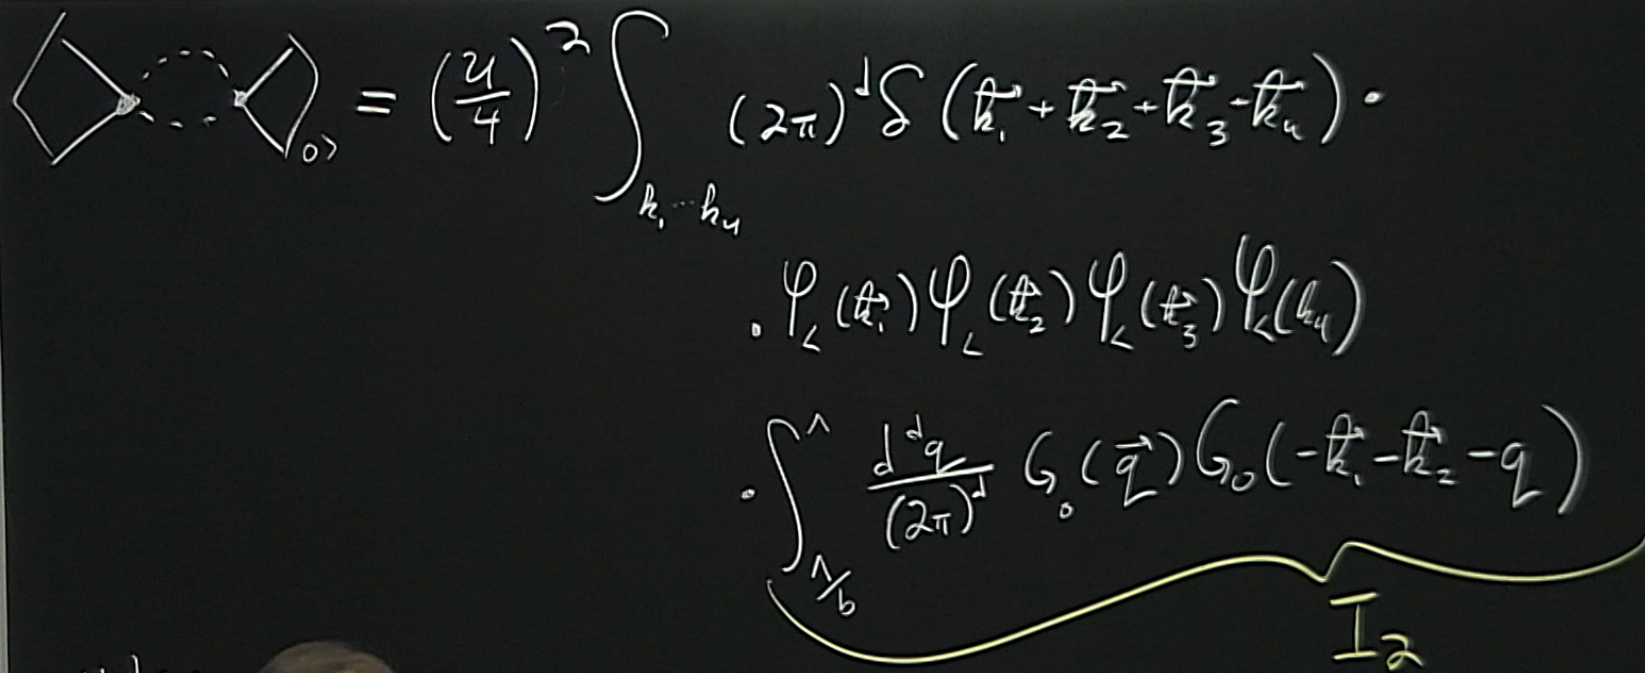 ⟨ ⟩₀ = (u/4)² ∫_{k₁…k₄} (2π)^d δ(k⃗₁ + k⃗₂ + k⃗₃ + k⃗₄) ·
· φ_<(k⃗₁) φ_<(k⃗₂) φ_<(k⃗₃) φ_<(k₄)
· ∫_{Λ/b}^{Λ} d^d q/(2π)^d G₀(q⃗) G₀(-k⃗₁ - k⃗₂ - q)
I₂